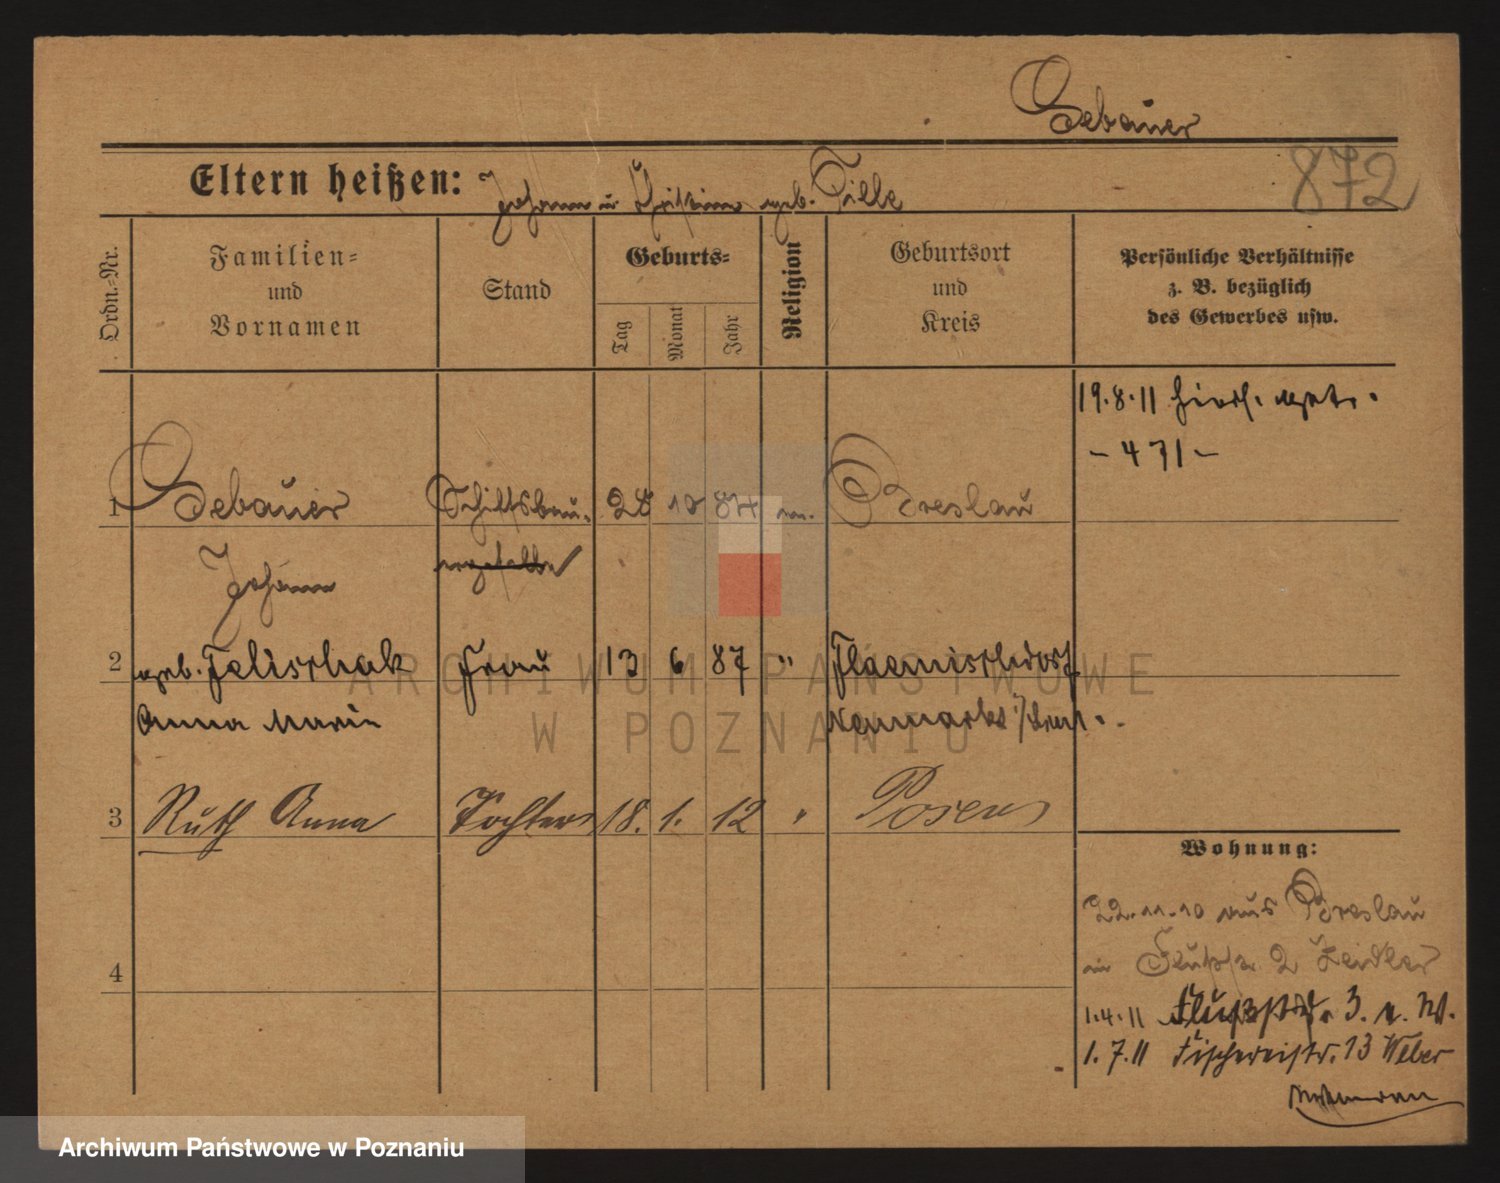 Gebauer
872
Eltern heißen: Johann u Christiane geb. Tille
Ordn.-Nr.
Familien-
und
Vornamen
Stand
Geburts-
Tag
Monat
Jahr
Religion
Geburtsort
und
Kreis
Persönliche Verhältnisse
z. B. bezüglich
des Gewerbes usw.
19.8.11
- 471 -
1 Gebauer Schiffsbau- 28 10 84 Breslau
Johann
2 geb. Felischak Frau 13 6 87 " Flaemischdorf
Anna Marie Neumarkt
3 Ruth Anna Tochter 18. 1. 12 " Posen
4
Wohnung:
22.11.10 aus Breslau
in Flußstr. 2 Zeidler
1.4.11 Flußstr. 3.
1.7.11 Fischereistr. 13 Weber
ARCHIWUM PAŃSTWOWE
W POZNANIU
Archiwum Państwowe w Poznaniu